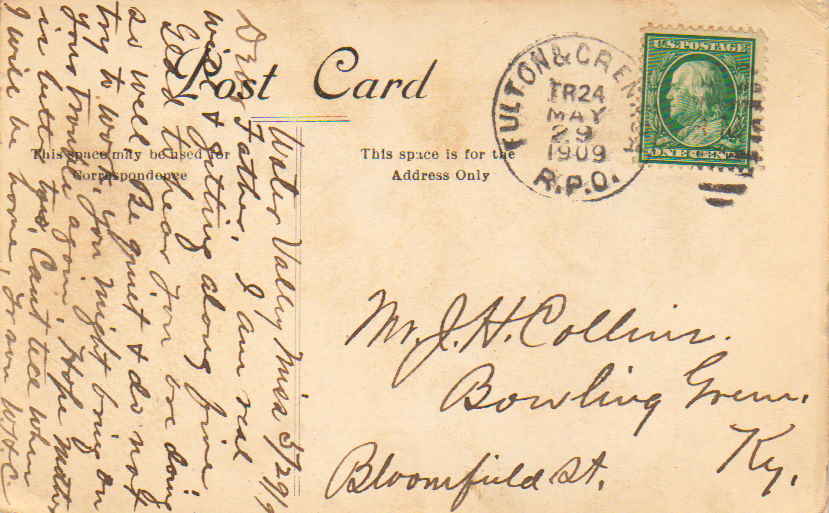 Post Card
This space may be used for
Correspondence
This space is for the
Address Only
FULTON & GREN
TR24
MAY
29
1909
R.P.O.
U.S. POSTAGE
ONE CENT
Water Valley Miss 5/29/9
Dear Father, I am real
well & getting along fine
Glad to hear you are doing
so well. Be quiet & do not
try to work, you might bring on
your trouble again, Hope
is better too, Cant tell when
I will be home, Yr son W.H.C.
Mr. J. H. Collins.
Bowling Green,
Ky.
Bloomfield St.